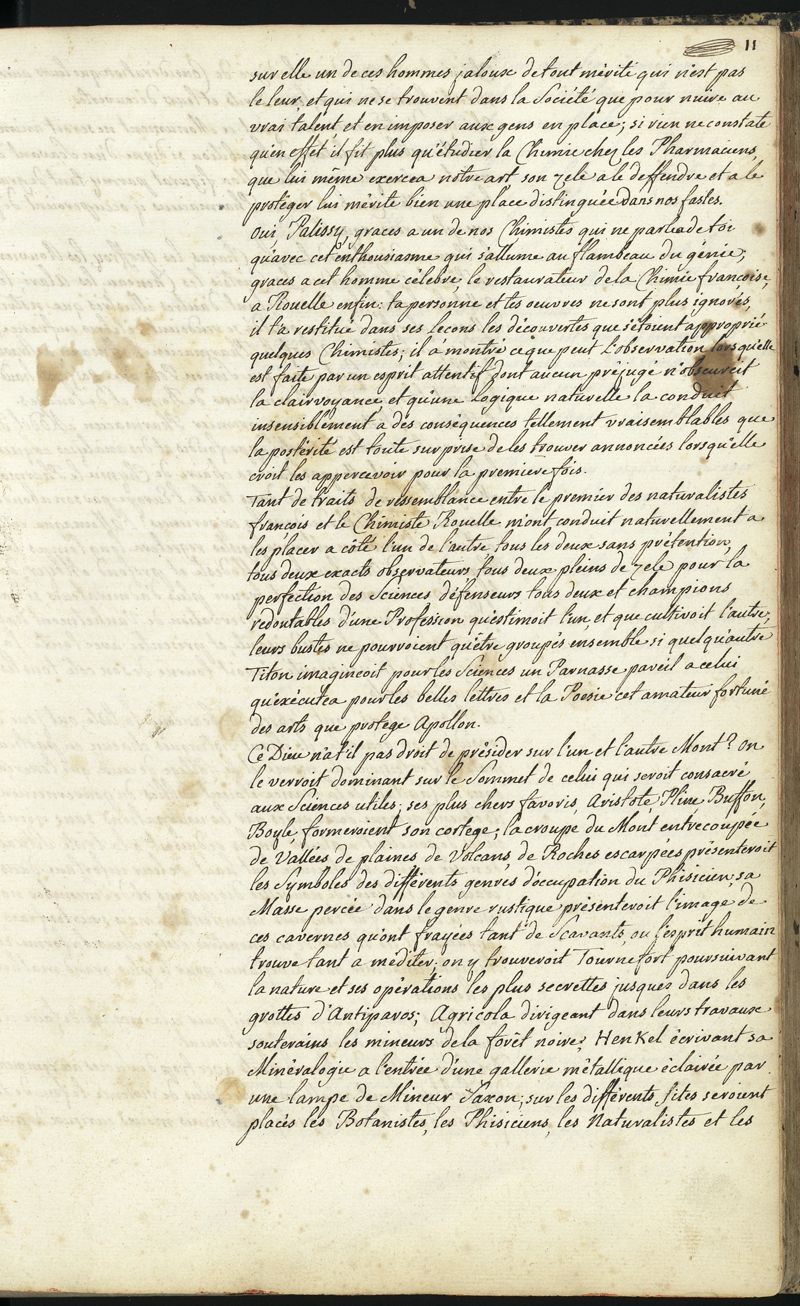 11
sur elle un de ces hommes jaloux de tout mérite qui n'est pas
le leur, et qui ne se trouvent dans la Société que pour nuire au
vrai talent et en imposer aux gens en place; si rien ne constate
qu'en effet il fit plus qu'étudier la Chimie chez les Pharmaciens,
que lui même exercea notre art son zele a le deffendre et a le
protéger lui mérite bien une place distinguée dans nos fastes.
Oui, Palissy, graces a un de nos Chimistes qui ne parle de toi
qu'avec cet enthousiasme qui s'allume au flambeau du génie;
graces a cet homme célebre, le restaurateur de la Chimie françoise,
a Rouelle enfin: ta personne et tes oeuvres ne sont plus ignorés,
il t'a restitué dans ses lecons les découvertes que s'étoient approprié
quelques Chimistes; il a montré ce que peut l'observation lorsqu'elle
est faite par un esprit attentif dont aucun préjugé n'obscurcit
la clairvoyance, et qu'une Logique naturelle la conduit
insensiblement a des conséquences tellement vraisemblables que
la postérité est toute surprise de les trouver annoncées lorsqu'elle
croit les appercevoir pour la premiere fois.
Tant de traits de ressemblance entre le premier des naturalistes
francois et le Chimiste Rouelle m'ont conduit naturellement a
les placer a côté l'un de l'autre tous les deux sans prétention,
tous deux exacts observateurs tous deux pleins de zele pour la
perfection des Sciences défenseurs tous deux et champions
rédoutables d'une Profession qu'estimoit l'un, et que cultivoit l'autre,
leurs bustes ne pourroient qu'être groupés ensemble si quelqu'autre
Titon imaginoit pour les Sciences un Parnasse pareil a celui
qu'exécutea pour les belles lettres et la Poesie cet amateur fortuné
des arts que protege Apollon.
Ce Dieu n'a t'il pas droit de présider sur l'un et l'autre Mont? On
le verroit dominant sur le Sommet de celui qui seroit consacré
aux Sciences utiles; ses plus chers favoris, Aristote, Pline Buffon,
Boyle, formeroient son cortege; la croupe du Mont entrecoupée
de Vallées de plaines de Volcans, de Roches escarpées présenteroit
les Symboles des différents genres d'occupation du Phisicien, sa
Masse percée dans le genre rustique présenteroit l'image de
ces cavernes qu'ont frayées tant de Scavants, ou l'esprit humain
trouve tant a méditer; on y trouveroit Tournefort poursuivant
la nature et ses opérations les plus secrettes jusques dans les
grottes d'Antiparos; Agricola dirigeant dans leurs travaux
souterains les mineurs de la forêt noire; Henkel écrivant sa
Minéralogie a l'entrée d'une gallerie métallique éclairée par
une lampe de Mineur Saxon; sur les différents sites seroient
placés les Botanistes, les Phisiciens, les Naturalistes et les